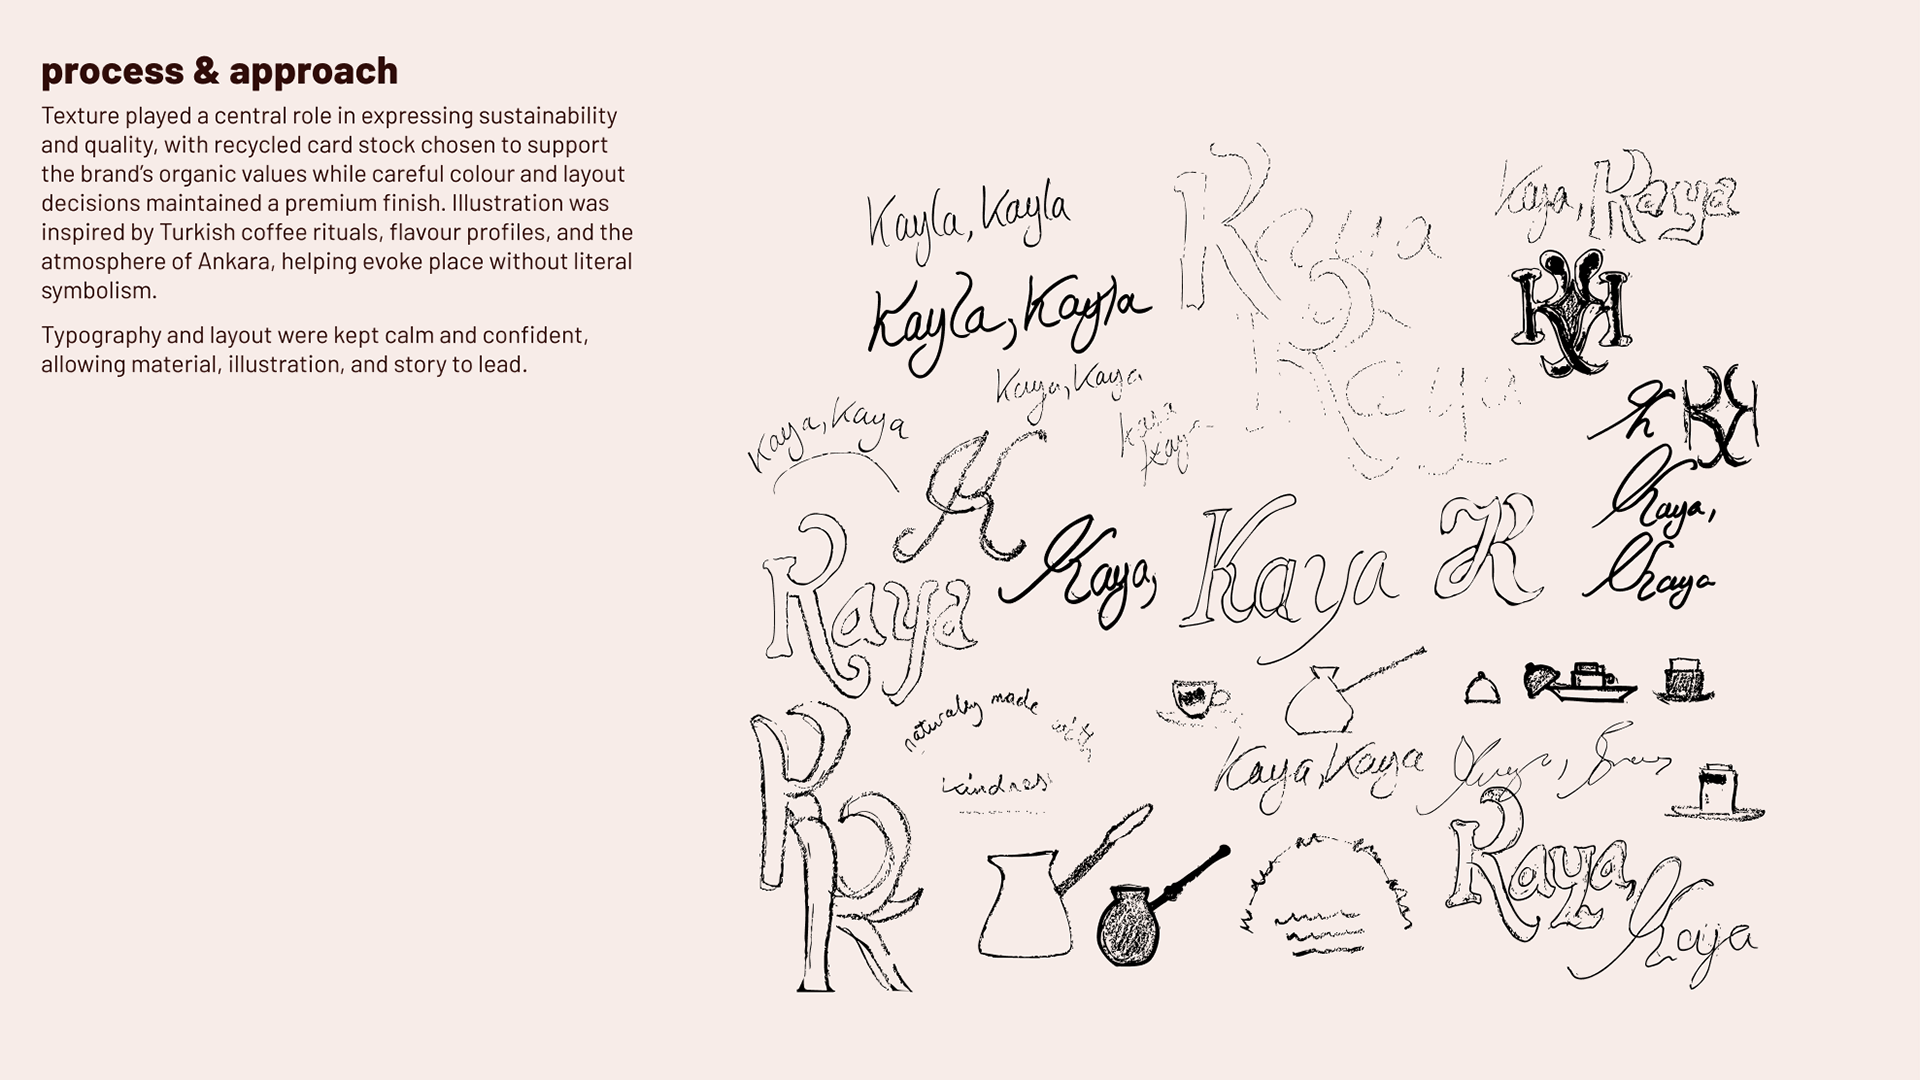 process & approach
Texture played a central role in expressing sustainability
and quality, with recycled card stock chosen to support
the brand’s organic values while careful colour and layout
decisions maintained a premium finish. Illustration was
inspired by Turkish coffee rituals, flavour profiles, and the
atmosphere of Ankara, helping evoke place without literal
symbolism.
Typography and layout were kept calm and confident,
allowing material, illustration, and story to lead.
Kayla, Kayla
Kaya
Kaya, Kaya
Kayla, Kayla
KK
Kaya, Kaya
Kaya
kaya
kaya
Kaya, Kaya
K
K
KK
Kaya,
Kaya
Kaya
Kaya,
Kaya
K
Kaya
naturally made with
kindness
KK
Kaya, Kaya
Kaya,
Kaya